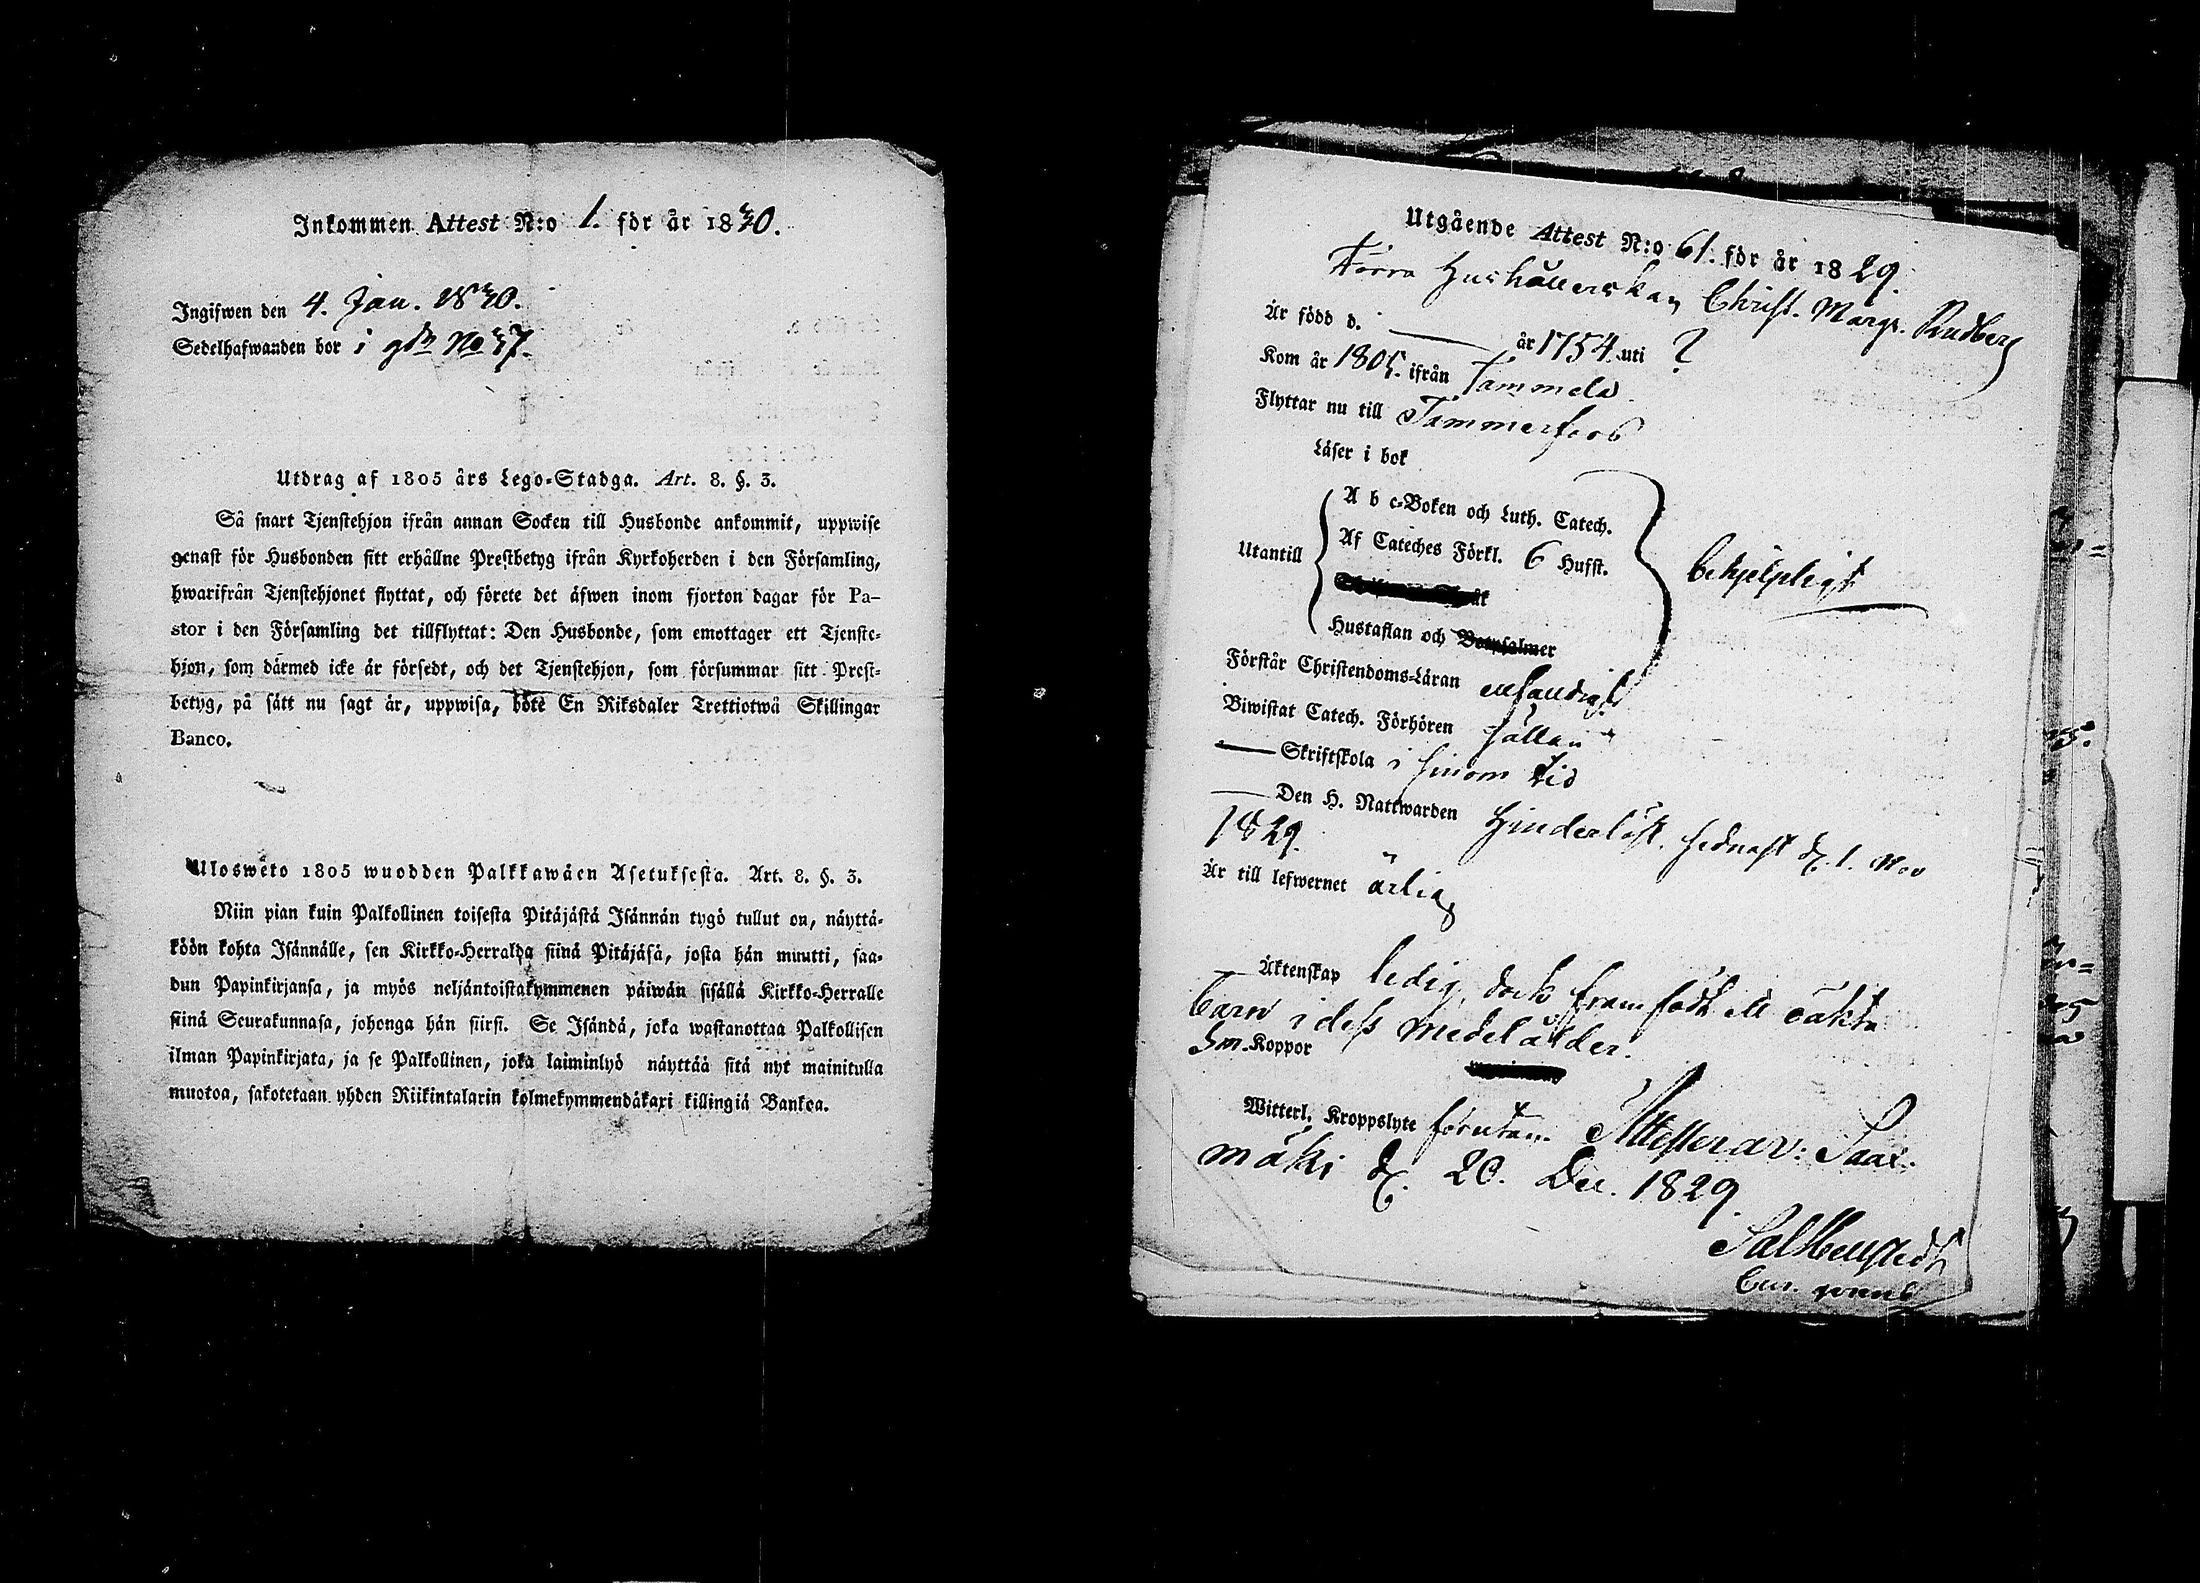 Inkommen Attest N:o 1. för år 1830.
Ingifwen den 4. Jan. 1830.
Sedelhafwanden bor i gdn No 37.
Utdrag af 1805 års Lego-Stadga. Art. 8. §. 3.
Så snart Tjenstehjon ifrån annan Socken till Husbonde ankommit, uppwise
genast för Husbonden sitt erhållne Prestbetyg ifrån Kyrkoherden i den Församling,
hwarifrån Tjenstehjonet flyttat, och förete det äfwen inom fjorton dagar för Pa-
stor i den Församling det tillflyttat: Den Husbonde, som emottager ett Tjenste-
hjon, som därmed icke är försedt, och det Tjenstehjon, som försummar sitt Prest-
betyg, på sätt nu sagt är, uppwisa, böte En Riksdaler Trettiotwå Skillingar
Banco.
Uloswéto 1805 wuodden Palkkawäen Asetuksesta. Art. 8. §. 3.
Niin pian kuin Palkollinen toisesta Pitäjästä Isännän tygö tullut on, näyttä-
köön kohta Isännälle, sen Kirkko-Herralda siinä Pitäjäsä, josta hän muutti, saa-
dun Papinkirjansa, ja myös neljäntoistakymmenen päiwän sisällä Kirkko-Herralle
siinä Seurakunnasa, johonga hän siirsi. Se Isändä, joka wastanottaa Palkollisen
ilman Papinkirjata, ja se Palkollinen, joka laiminlyö näyttää sitä nyt mainitulla
muotoa, sakotetaan yhden Riikintalarin kolmekymmendäkaxi killingiä Bankoa.
Utgående Attest N:o 61. för år 1829.
Förra Hushållerskan Christ. Margr. Rudberg
Är född d. — år 1754. uti ?
Kom år 1805. ifrån Tammela.
Flyttar nu till Tammerfors
Läser i bok
A b c-Boken och Luth. Catech.
Utantill Af Cateches Förkl. 6 Hufst. behjelpligt
Hustaflan och Botpsalmer
Förstår Christendoms-Läran enfaldigt
Biwistat Catech. Förhören sällan
— Skriftskola i sinom tid
— Den H. Nattwarden Hinderlöst. sednast d. 1. Nov
1829.
Är till lefwernet ärlig
Äktenskap ledig, dock framfödt ett oäkta
barn i dess medelålder.
Sm. Koppor
Witterl. Kroppslyte förutan. Attesterar: Sääx-
mäki d. 20. Dec. 1829.